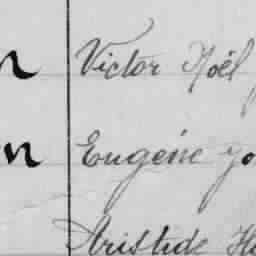 n Victor Noël
n Eugène
Aristide